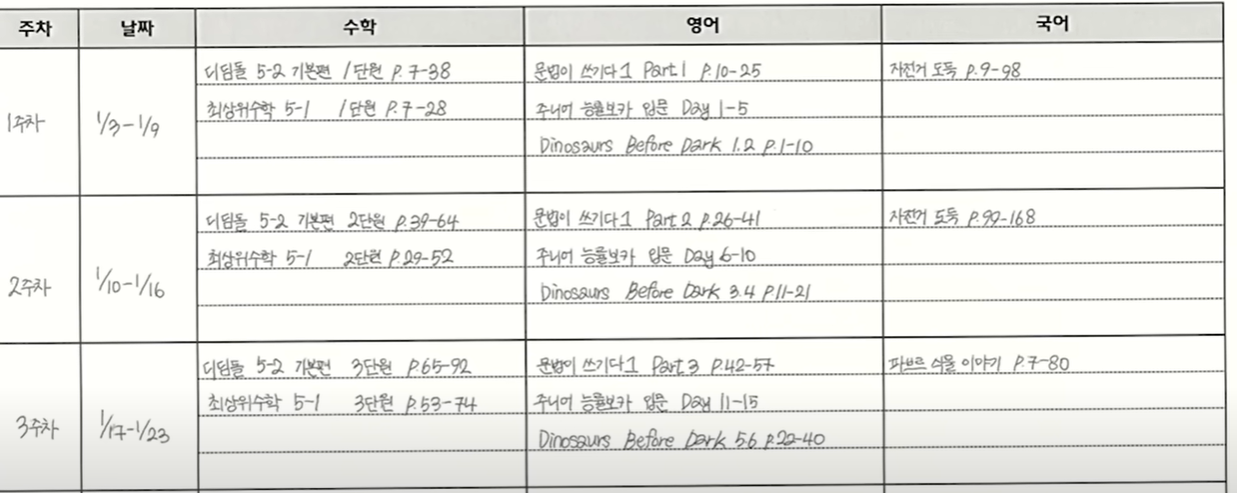 주차 날짜 수학 영어 국어
1주차 1/3-1/9
디딤돌 5-2 기본편 1단원 P.7-38
최상위수학 5-1 1단원 P.7-28
문법이 쓰기다1 Part 1 P.10-25
주니어 능률보카 입문 Day 1-5
Dinosaurs Before Dark 1.2 P.1-10
자전거 도둑 P.9-98
2주차 1/10-1/16
디딤돌 5-2 기본편 2단원 P.39-64
최상위수학 5-1 2단원 P.29-52
문법이 쓰기다1 Part 2 P.26-41
주니어 능률보카 입문 Day 6-10
Dinosaurs Before Dark 3.4 P.11-21
자전거 도둑 P.99-168
3주차 1/17-1/23
디딤돌 5-2 기본편 3단원 P.65-92
최상위수학 5-1 3단원 P.53-74
문법이 쓰기다1 Part 3 P.42-57
주니어 능률보카 입문 Day 11-15
Dinosaurs Before Dark 5.6 P.22-40
파브르 식물 이야기 P.7-80